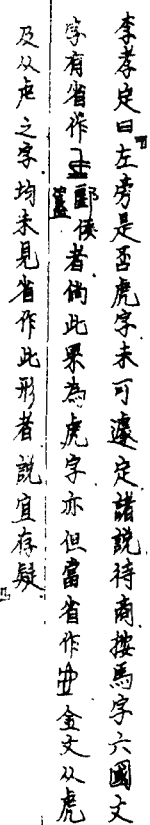 李孝定曰左旁是否虎字未可遽定諸說待商按馬字六國文
字有省作 郾侯 者倘此果為虎字亦但當省作 金文从虎
及从虍之字均未見省作此形者說宜存疑